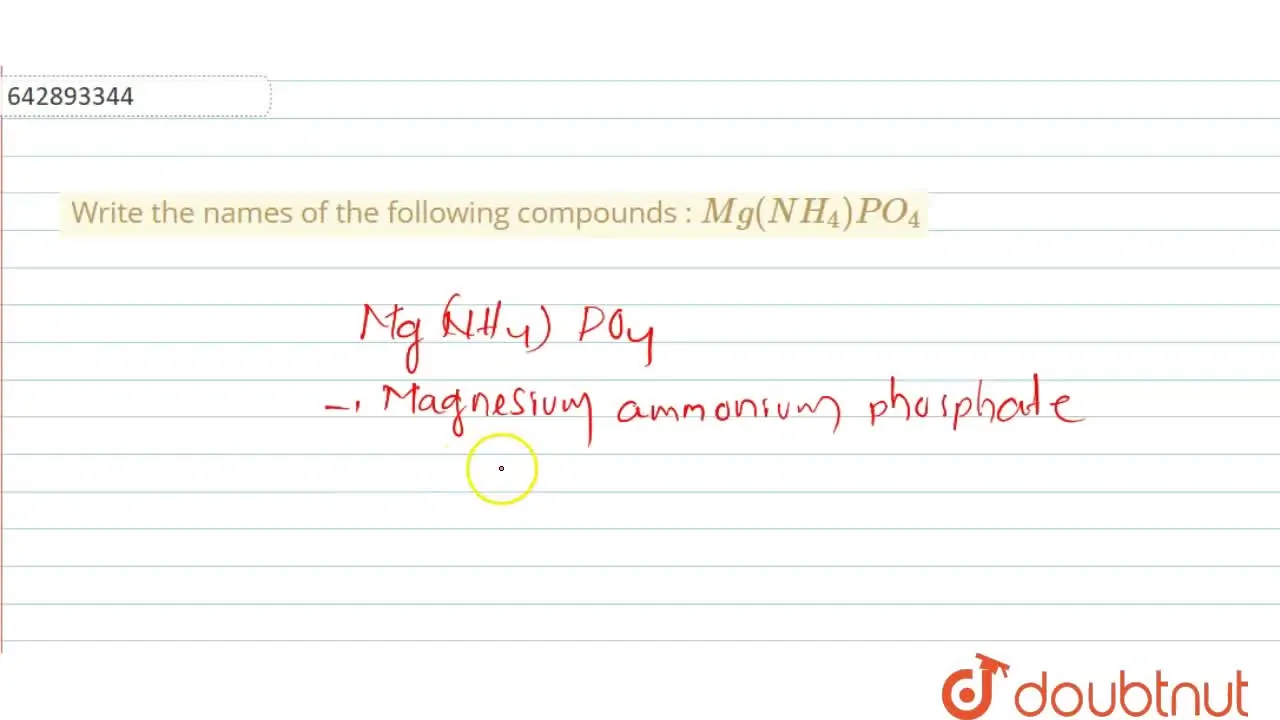 642893344
Write the names of the following compounds : Mg(NH₄)PO₄
Mg (NH₄) PO₄
-. Magnesium ammonium phosphate
doubtnut